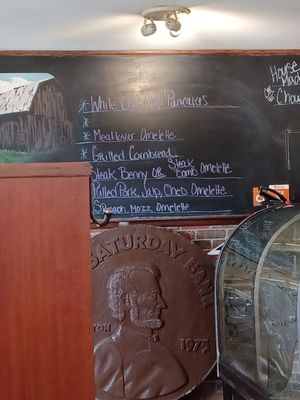 White Choc Chip Pancakes
Meatlover Omelette
Grilled Cornbread
Steak Benny OR Steak Bomb Omelette
Pulled Pork, Jalp, Ched Omelette
Spinach, Mozz, Omelette
House
Chow
SATURDAY BANK
1975